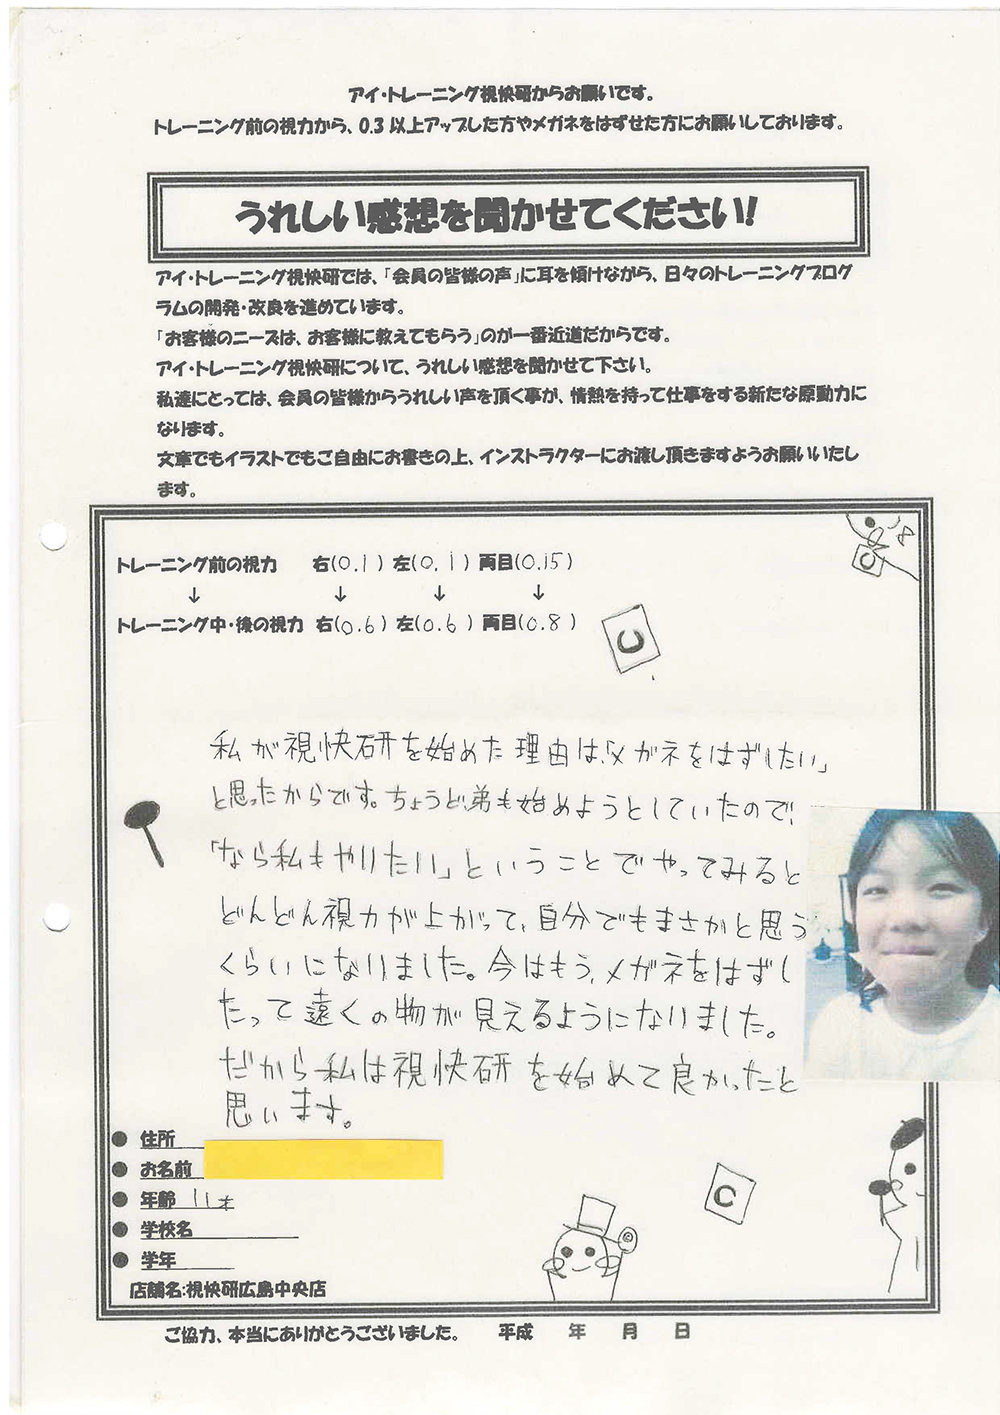 アイ・トレーニング視快研からお願いです。
トレーニング前の視力から、0.3以上アップした方やメガネをはずせた方にお願いしております。
うれしい感想を聞かせてください!
アイ・トレーニング視快研では、「会員の皆様の声」に耳を傾けながら、日々のトレーニングプログ
ラムの開発・改良を進めています。
「お客様のニーズは、お客様に教えてもらう」のが一番近道だからです。
アイ・トレーニング視快研について、うれしい感想を聞かせて下さい。
私達にとっては、会員の皆様からうれしい声を頂く事が、情熱を持って仕事をする新たな原動力に
なります。
文章でもイラストでもご自由にお書きの上、インストラクターにお渡し頂きますようお願いいたし
ます。
トレーニング前の視力 右(0.1) 左(0.1) 両目(0.15)
↓ ↓ ↓ ↓
トレーニング中・後の視力 右(0.6) 左(0.6) 両目(0.8)
私が視快研を始めた理由は、「メガネをはずしたい」
と思ったからです。ちょうど、弟も始めようとしていたので、
「なら私もやりたい」ということでやってみると
どんどん視力が上がって、自分でもまさかと思う
くらいになりました。今はもう、メガネをはずし
たって遠くの物が見えるようになりました。
だから私は視快研を始めて良かったと
思います。
● 住所
● お名前
● 年齢 11才
● 学校名
● 学年
店舗名:視快研広島中央店
C
ご協力、本当にありがとうございました。 平成 年 月 日